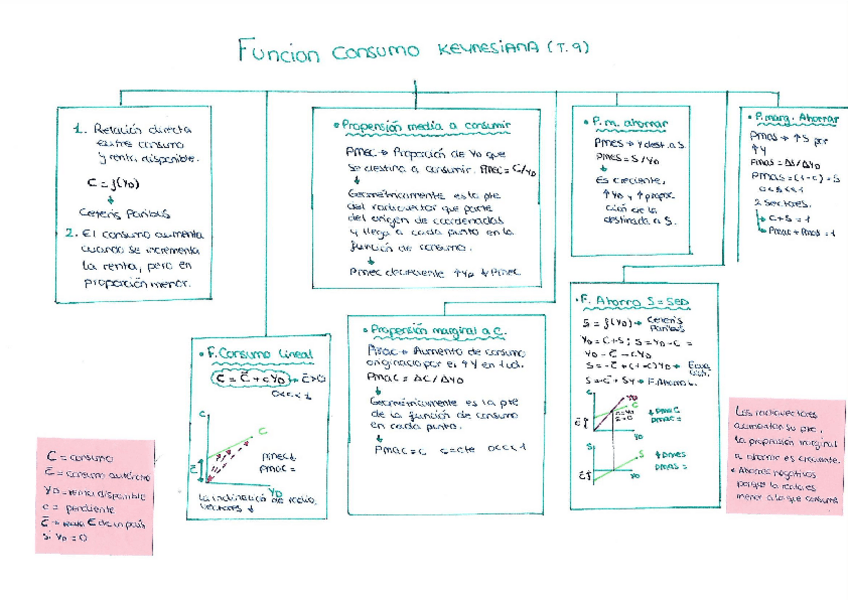 FUNCION CONSUMO KEYNESIANA (T.9)
1. Relación directa
entre consumo
y renta disponible.
C = f(YD)
Ceteris Paribus
2. El consumo aumenta
cuando se incrementa
la renta, pero en
proporción menor.
• Propensión media a consumir
PMeC → Proporción de YD que
se destina a consumir. PMeC = C/YD
Geométricamente es la pte
del radiovector que parte
del origen de coordenadas
y llega a cada punto en la
función de consumo.
PMeC decreciente ↑YD ↓PMeC
• P.m. ahorrar
PMeS → Y dest. a S.
PMeS = S/YD
Es creciente,
↑YD, ↑ propor-
ción de la
destinada a S.
• P.marg. Ahorrar
PMaS → ↑S por
↑Y
PMaS = ΔS/ΔYD
PMaS = (1-c) = s
0<s<1
2 sectores.
C+S = 1
PMac + PMaS = 1
• F. Consumo Lineal
C = C̅ + cYD → C̅ > 0
0<c<1
C
C̅
YD
PMeC ↓
PMaC =
La inclinación de radio
vectores ↓
• Propensión marginal a C.
PMaC → Aumento de consumo
originado por el ↑Y en 1 ud.
PMaC = ΔC/ΔYD
Geométricamente es la pte
de la función de consumo
en cada punto.
PMaC = c c = cte 0<c<1
• F. Ahorro S = S(YD)
S = f(YD) → Ceteris
Paribus
YD = C+S; S = YD-C =
YD - C̅ - cYD
S = -C̅ + (1-c)YD →
S = -C̅ + sY → F. Ahorro L.
C
YD
C
C̅
YD
↓PMeC
PMaC =
S
S
C̅
YD
↑PMeS
PMaS =
C = consumo
C̅ = consumo autónomo
YD = renta disponible
c = pendiente
C̅ → C de un país
si YD = 0
Los radiovectores
aumentan su pte,
la propensión marginal
a ahorrar es creciente.
• Ahorros negativos
porque la renta es
menor a lo que consumo